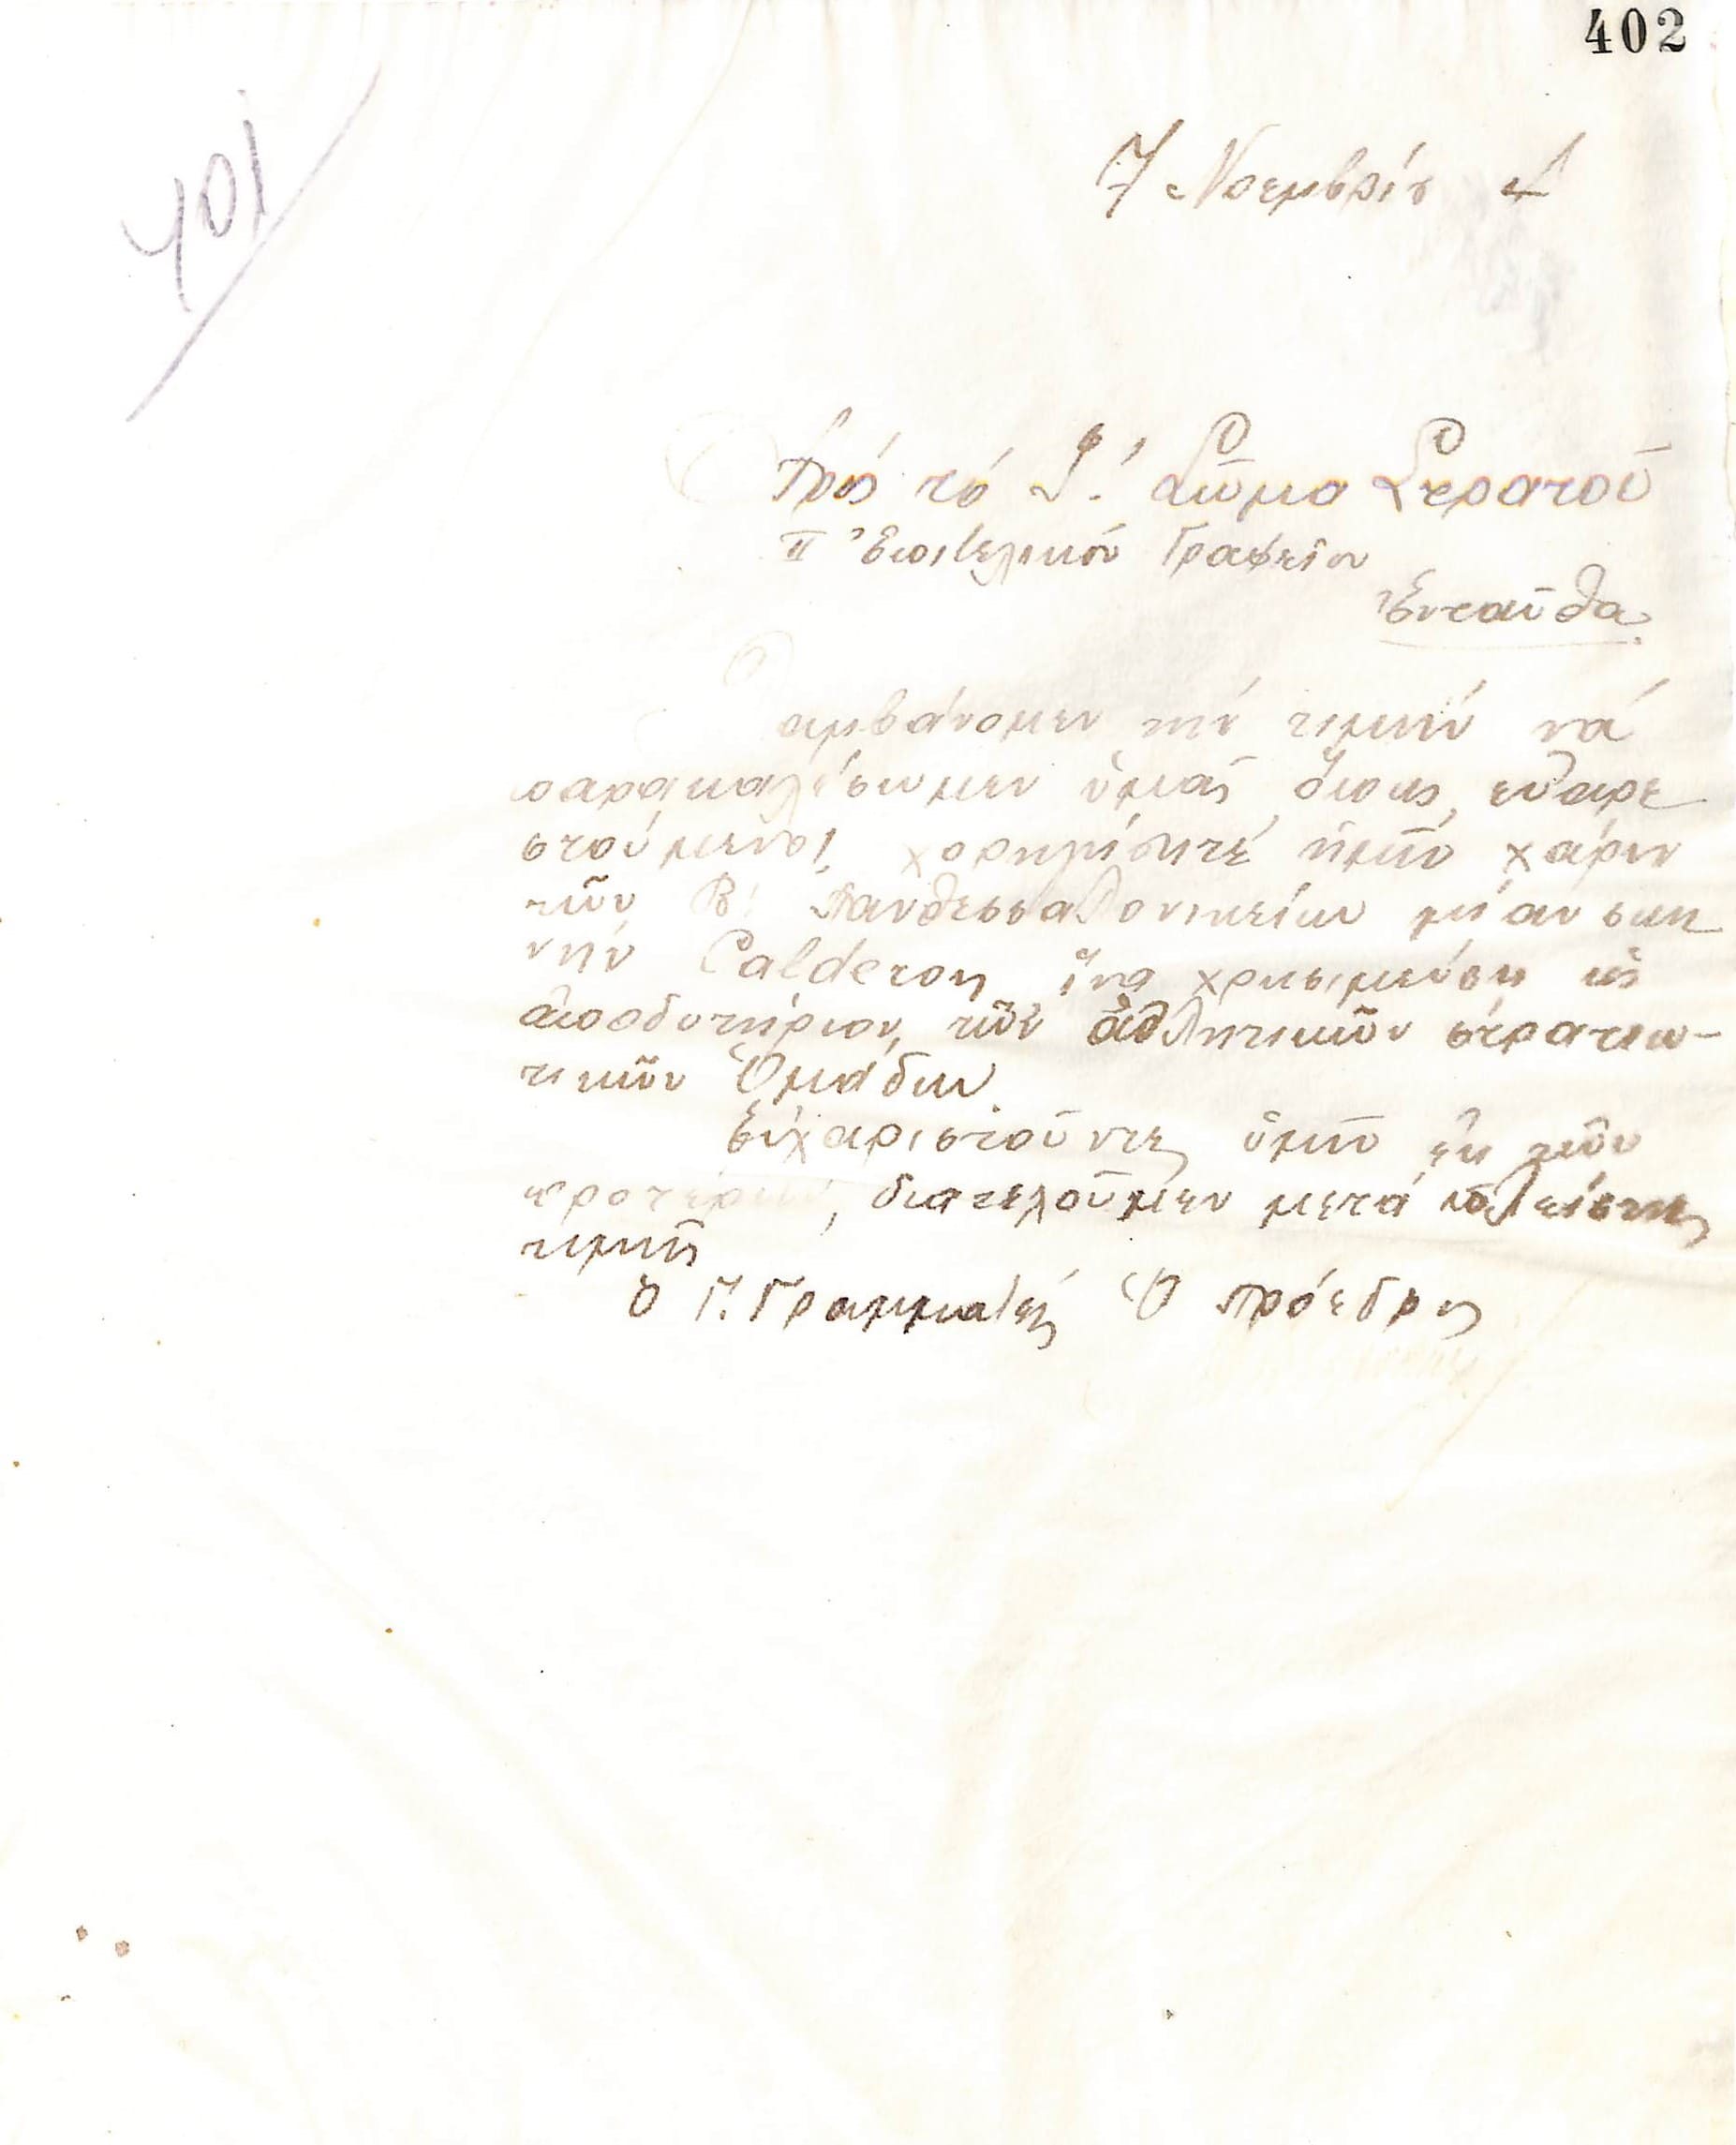 402
401
7 Νοεμβρίου
Πρός τό Γ'. Σῶμα Στρατοῦ
II Ἐπιτελικόν Γραφεῖον
Ἐνταῦθα
Λαμβάνομεν τήν τιμήν νά
παρακαλέσωμεν ὑμᾶς ὅπως, εὐαρε
στούμενοι, χορηγήσητέ ἡμῖν χάριν
τῶν Β' Πανθεσσαλονικείων μίαν σκη
νήν Calderon ἵνα χρησιμεύσῃ ὡς
ἀποδυτήριον τῶν ἀθλητικῶν στρατιω-
τικῶν Ὁμάδων.
Εὐχαριστοῦντες ὑμῖν ἐκ τῶν
προτέρων, διατελοῦμεν μετά πλείστης
τιμῆς
Ὁ Γ. Γραμματεύς Ὁ Πρόεδρος